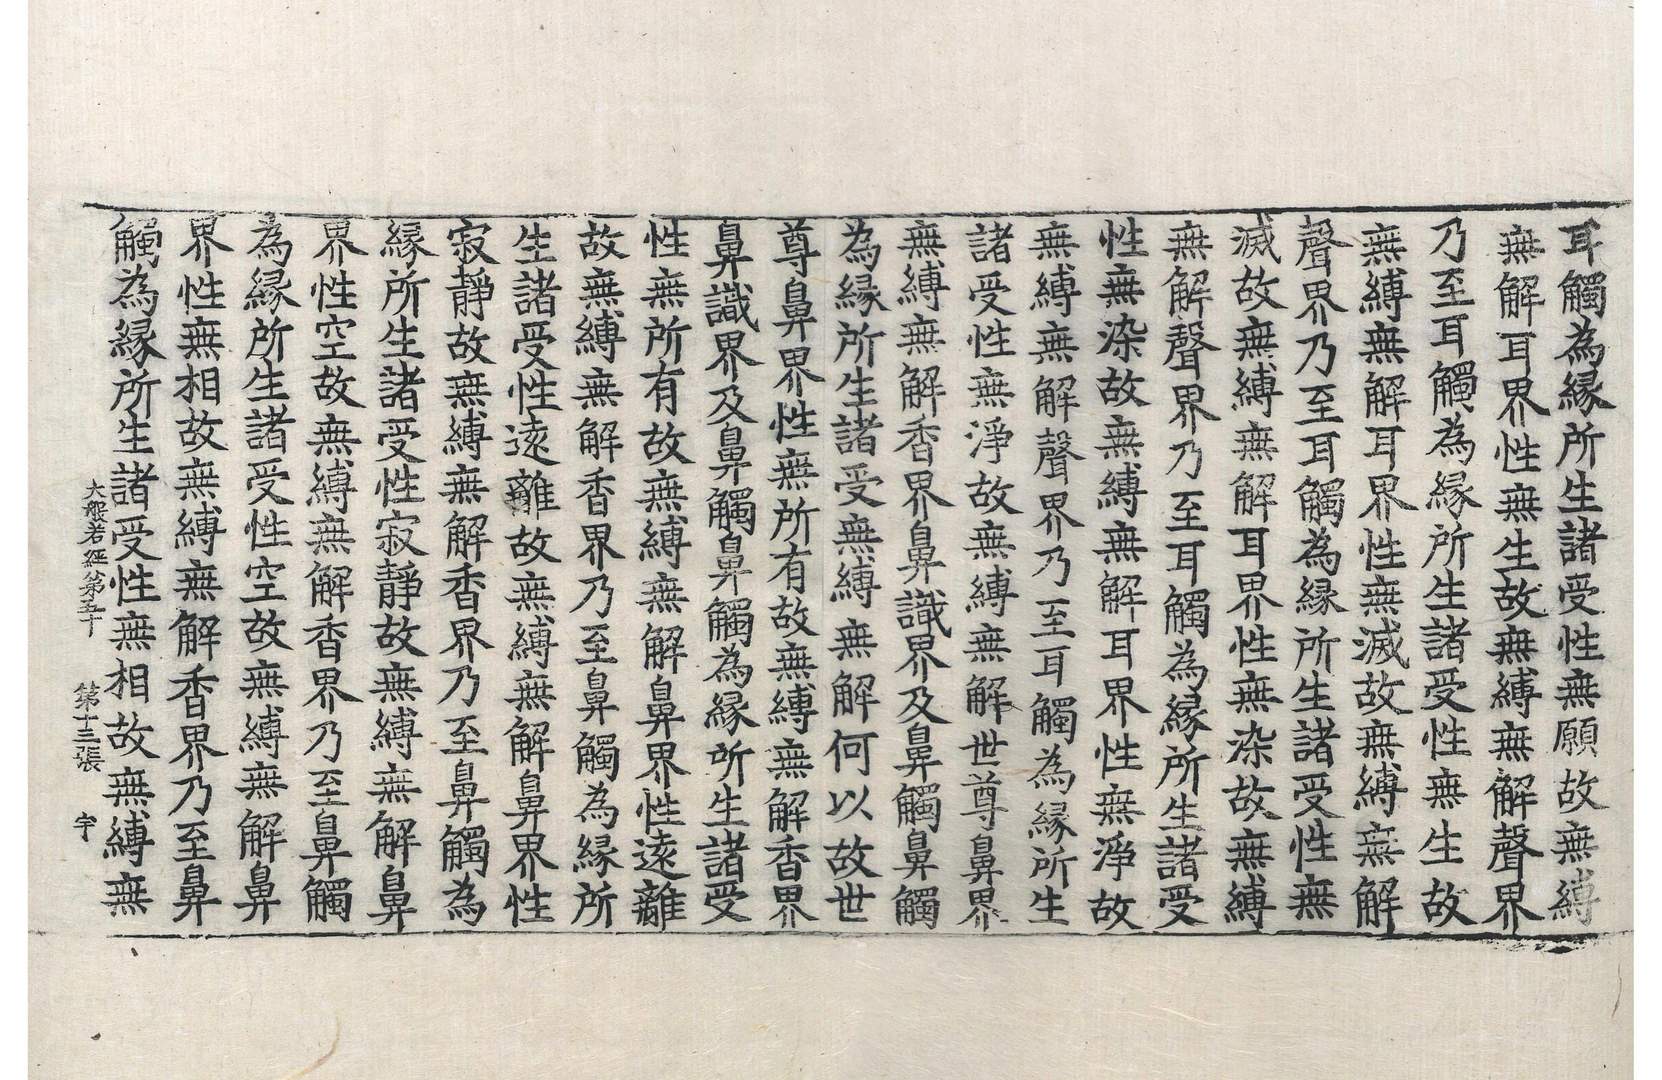 耳觸為縁所生諸受性無願故無縛
無解耳界性無生故無縛無解聲界
乃至耳觸為縁所生諸受性無生故
無縛無解耳界性無滅故無縛無解
聲界乃至耳觸為縁所生諸受性無
滅故無縛無解耳界性無染故無縛
無解聲界乃至耳觸為縁所生諸受
性無染故無縛無解耳界性無淨故
無縛無解聲界乃至耳觸為縁所生
諸受性無淨故無縛無解世尊鼻界
無縛無解香界鼻識界及鼻觸鼻觸
為縁所生諸受無縛無解何以故世
尊鼻界性無所有故無縛無解香界
鼻識界及鼻觸鼻觸為縁所生諸受
性無所有故無縛無解鼻界性遠離
故無縛無解香界乃至鼻觸為縁所
生諸受性遠離故無縛無解鼻界性
寂靜故無縛無解香界乃至鼻觸為
縁所生諸受性寂靜故無縛無解鼻
界性空故無縛無解香界乃至鼻觸
為縁所生諸受性空故無縛無解鼻
界性無相故無縛無解香界乃至鼻
觸為縁所生諸受性無相故無縛無
大般若經第五十 第十三張 宇